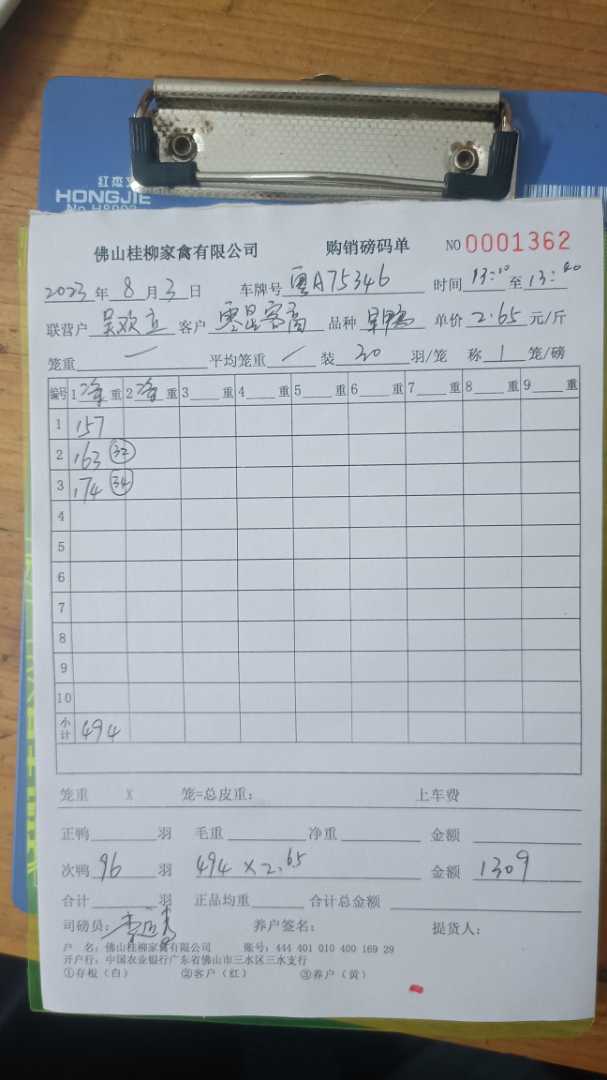 红杰
HONGJIE
佛山桂柳家禽有限公司 购销磅码单 NO 0001362
2023年8月3日 车牌号 粤A75346 时间 13:10 至 13:40
联营户 吴欢立 客户 零星客商 品种 单价 2.65 元/斤
笼重 — 平均笼重 / 装 30 羽/笼 称 1 笼/磅
编号 1 净重 2 净重 3 重 4 重 5 重 6 重 7 重 8 重 9 重
1 157
2 163 32
3 174 34
4
5
6
7
8
9
10
小计 494
笼重 X 笼=总皮重: 上车费
正鸭 羽 毛重 净重 金额
次鸭 96 羽 494 × 2.65 金额 1309
合计 羽 正品均重 合计总金额
司磅员: 养户签名: 提货人:
户 名: 佛山桂柳家禽有限公司 账号: 444 401 010 400 169 29
开户行: 中国农业银行广东省佛山市三水区三水支行
①存根(白) ②客户(红) ③养户(黄)